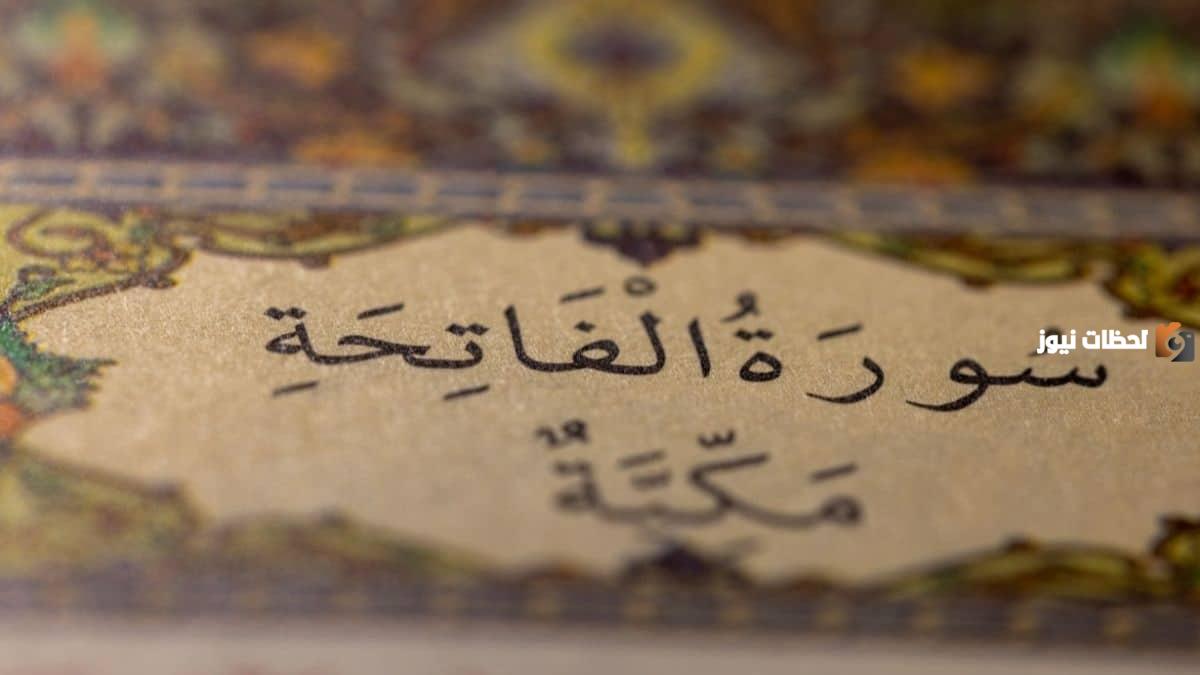 سُورَةُ الْفَاتِحَةِ
مَكِّيَّةٌ
لحظات نيوز